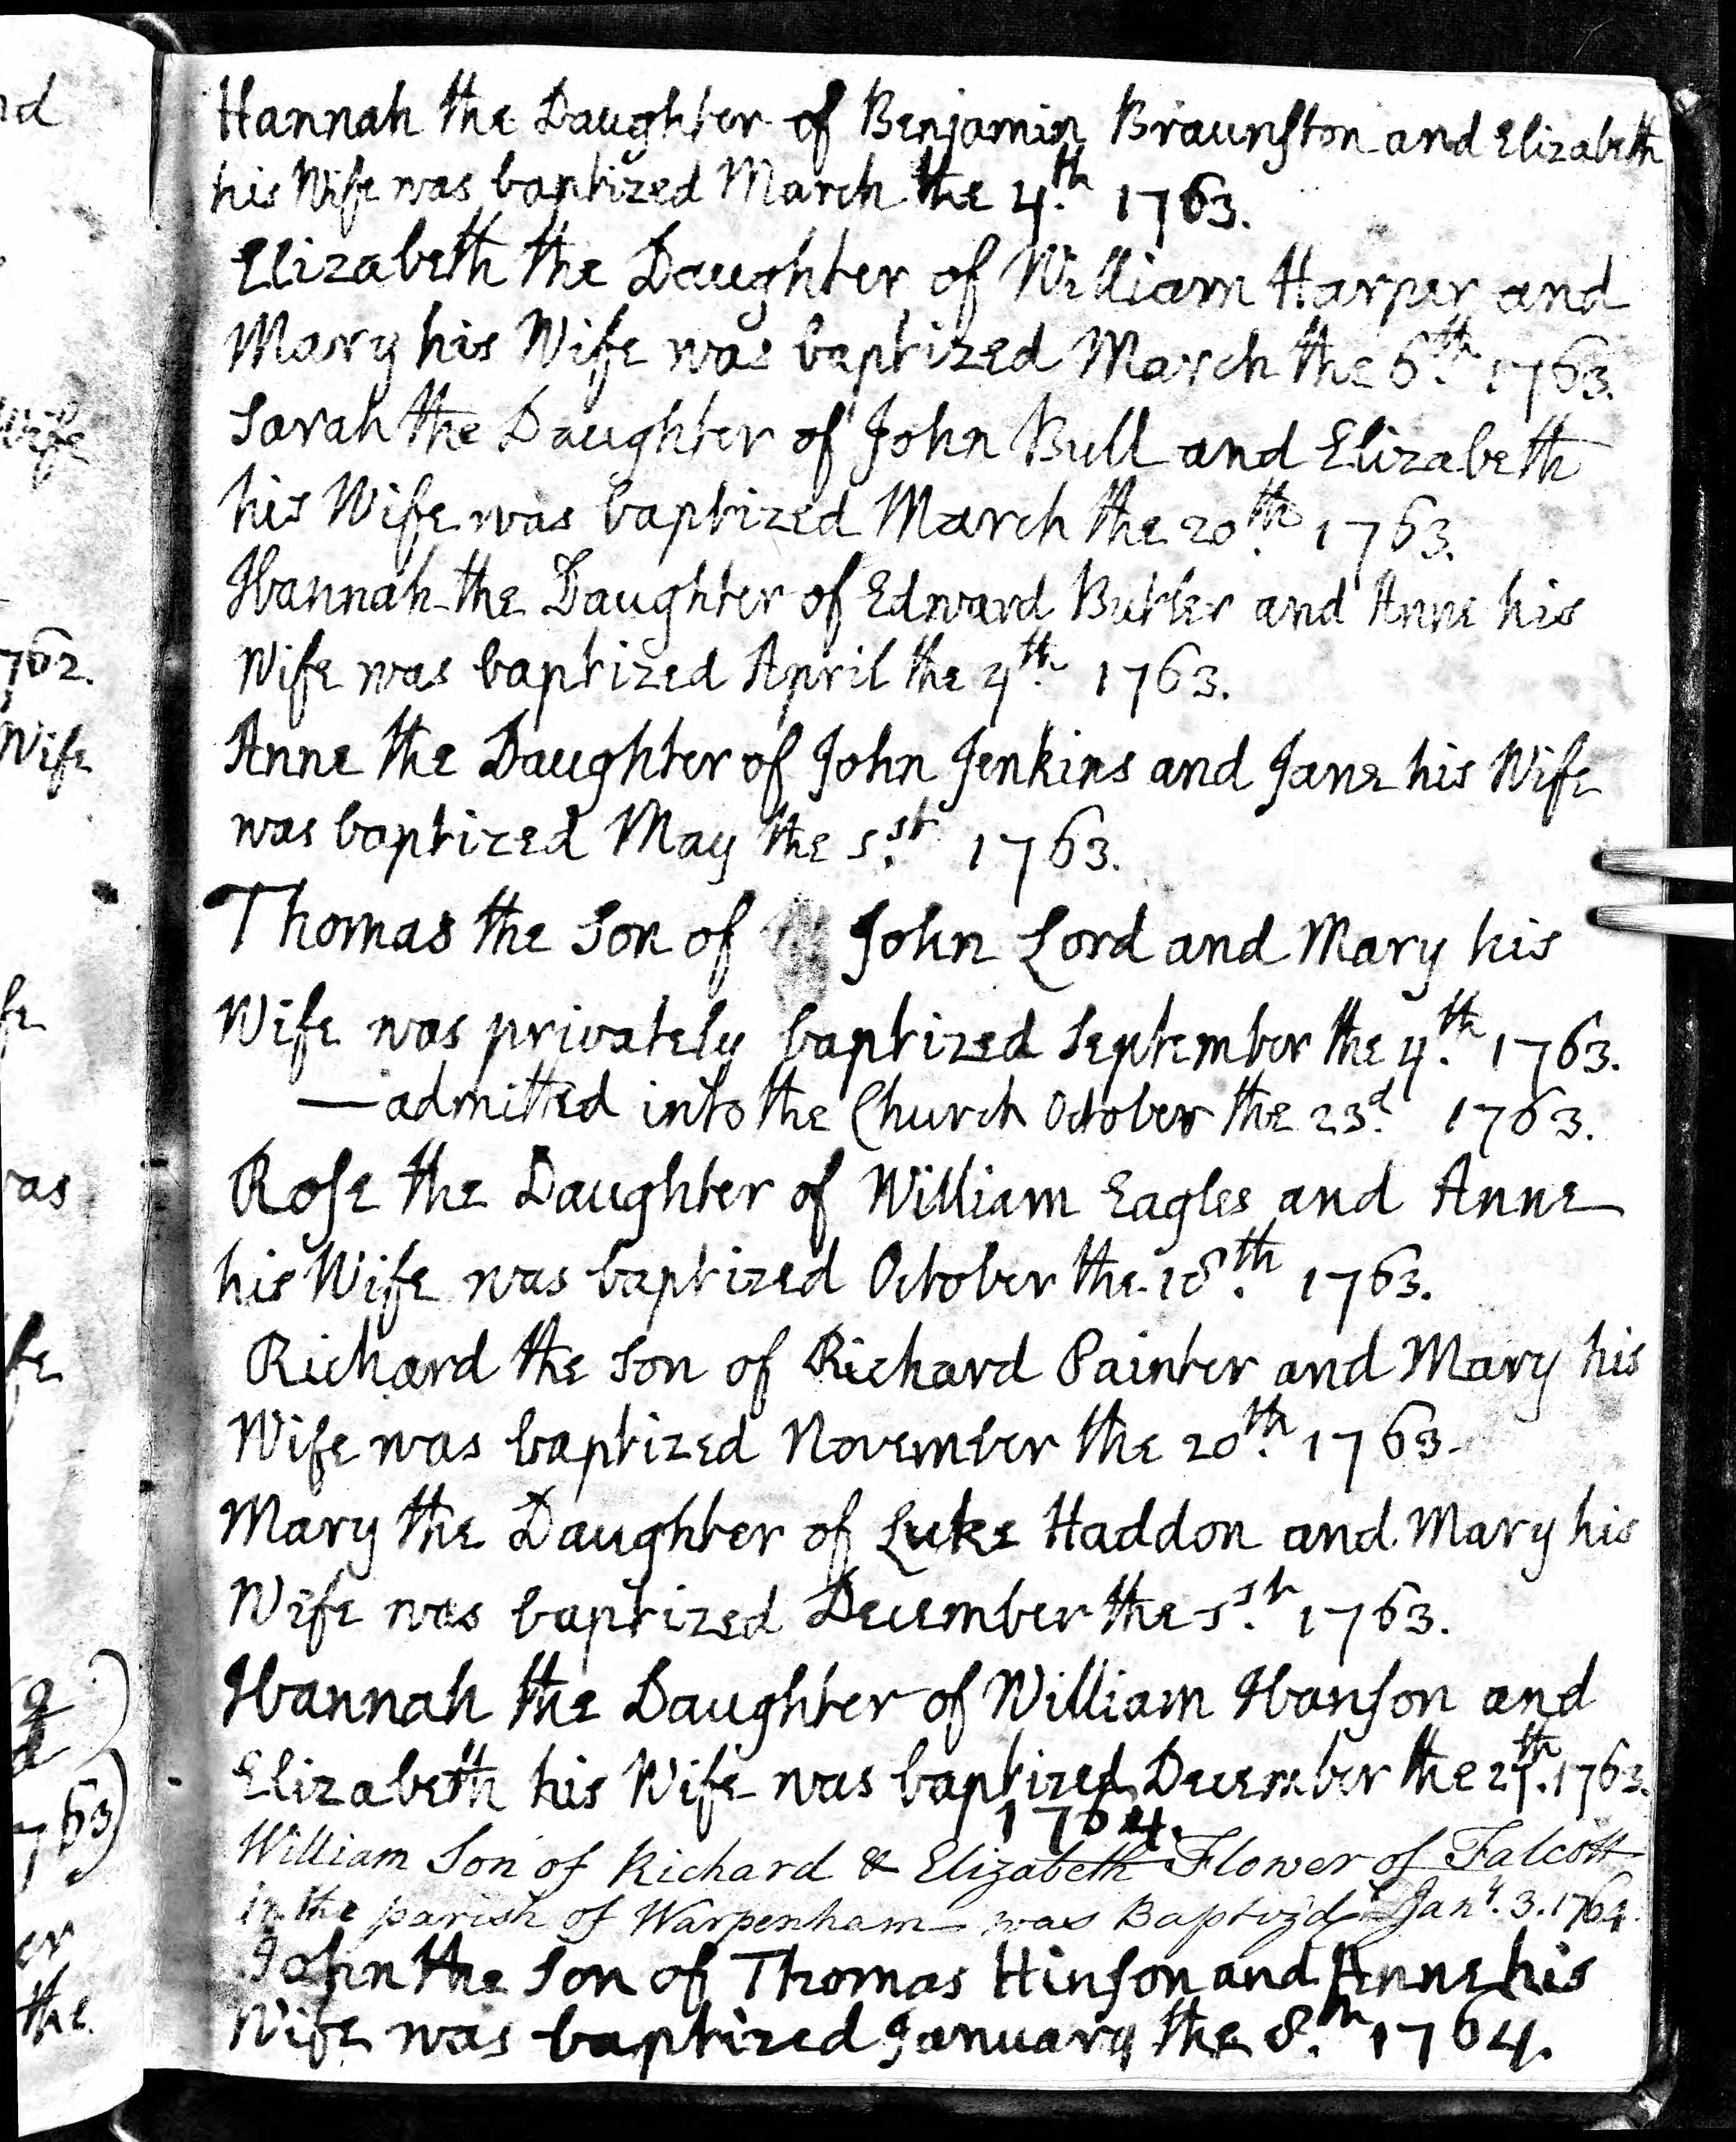 Hannah the Daughter of Benjamin Braunſton and Elizabeth
his Wife was baptized March the 4.th 1763.
Elizabeth the Daughter of William Harper and
Mary his Wife was baptized March the 6.th 1763.
Sarah the Daughter of John Bull and Elizabeth
his Wife was baptized March the 20.th 1763.
Hannah the Daughter of Edward Butler and Anne his
Wife was baptized April the 4.th 1763.
Anne the Daughter of John Jenkins and Jane his Wife
was baptized May the 1.st 1763.
Thomas the Son of John Lord and Mary his
Wife was privately baptized September the 4.th 1763.
—admitted into the Church October the 23.d 1763.
Roſe the Daughter of William Eagles and Anne
his Wife was baptized October the 18.th 1763.
Richard the Son of Richard Painter and Mary his
Wife was baptized November the 20.th 1763.
Mary the Daughter of Luke Haddon and Mary his
Wife was baptized December the 1.st 1763.
Hannah the Daughter of William Hanſon and
Elizabeth his Wife was baptized December the 27.th 1763.
1764.
William Son of Richard & Elizabeth Flower of Falcott
in the parish of Warpenham was Baptiz'd Jan.y 3. 1764.
John the Son of Thomas Hinſon and Anne his
Wife was baptized January the 8.th 1764.
nd
Wife
762.
Wife
fe
was
fe
763)
er
the